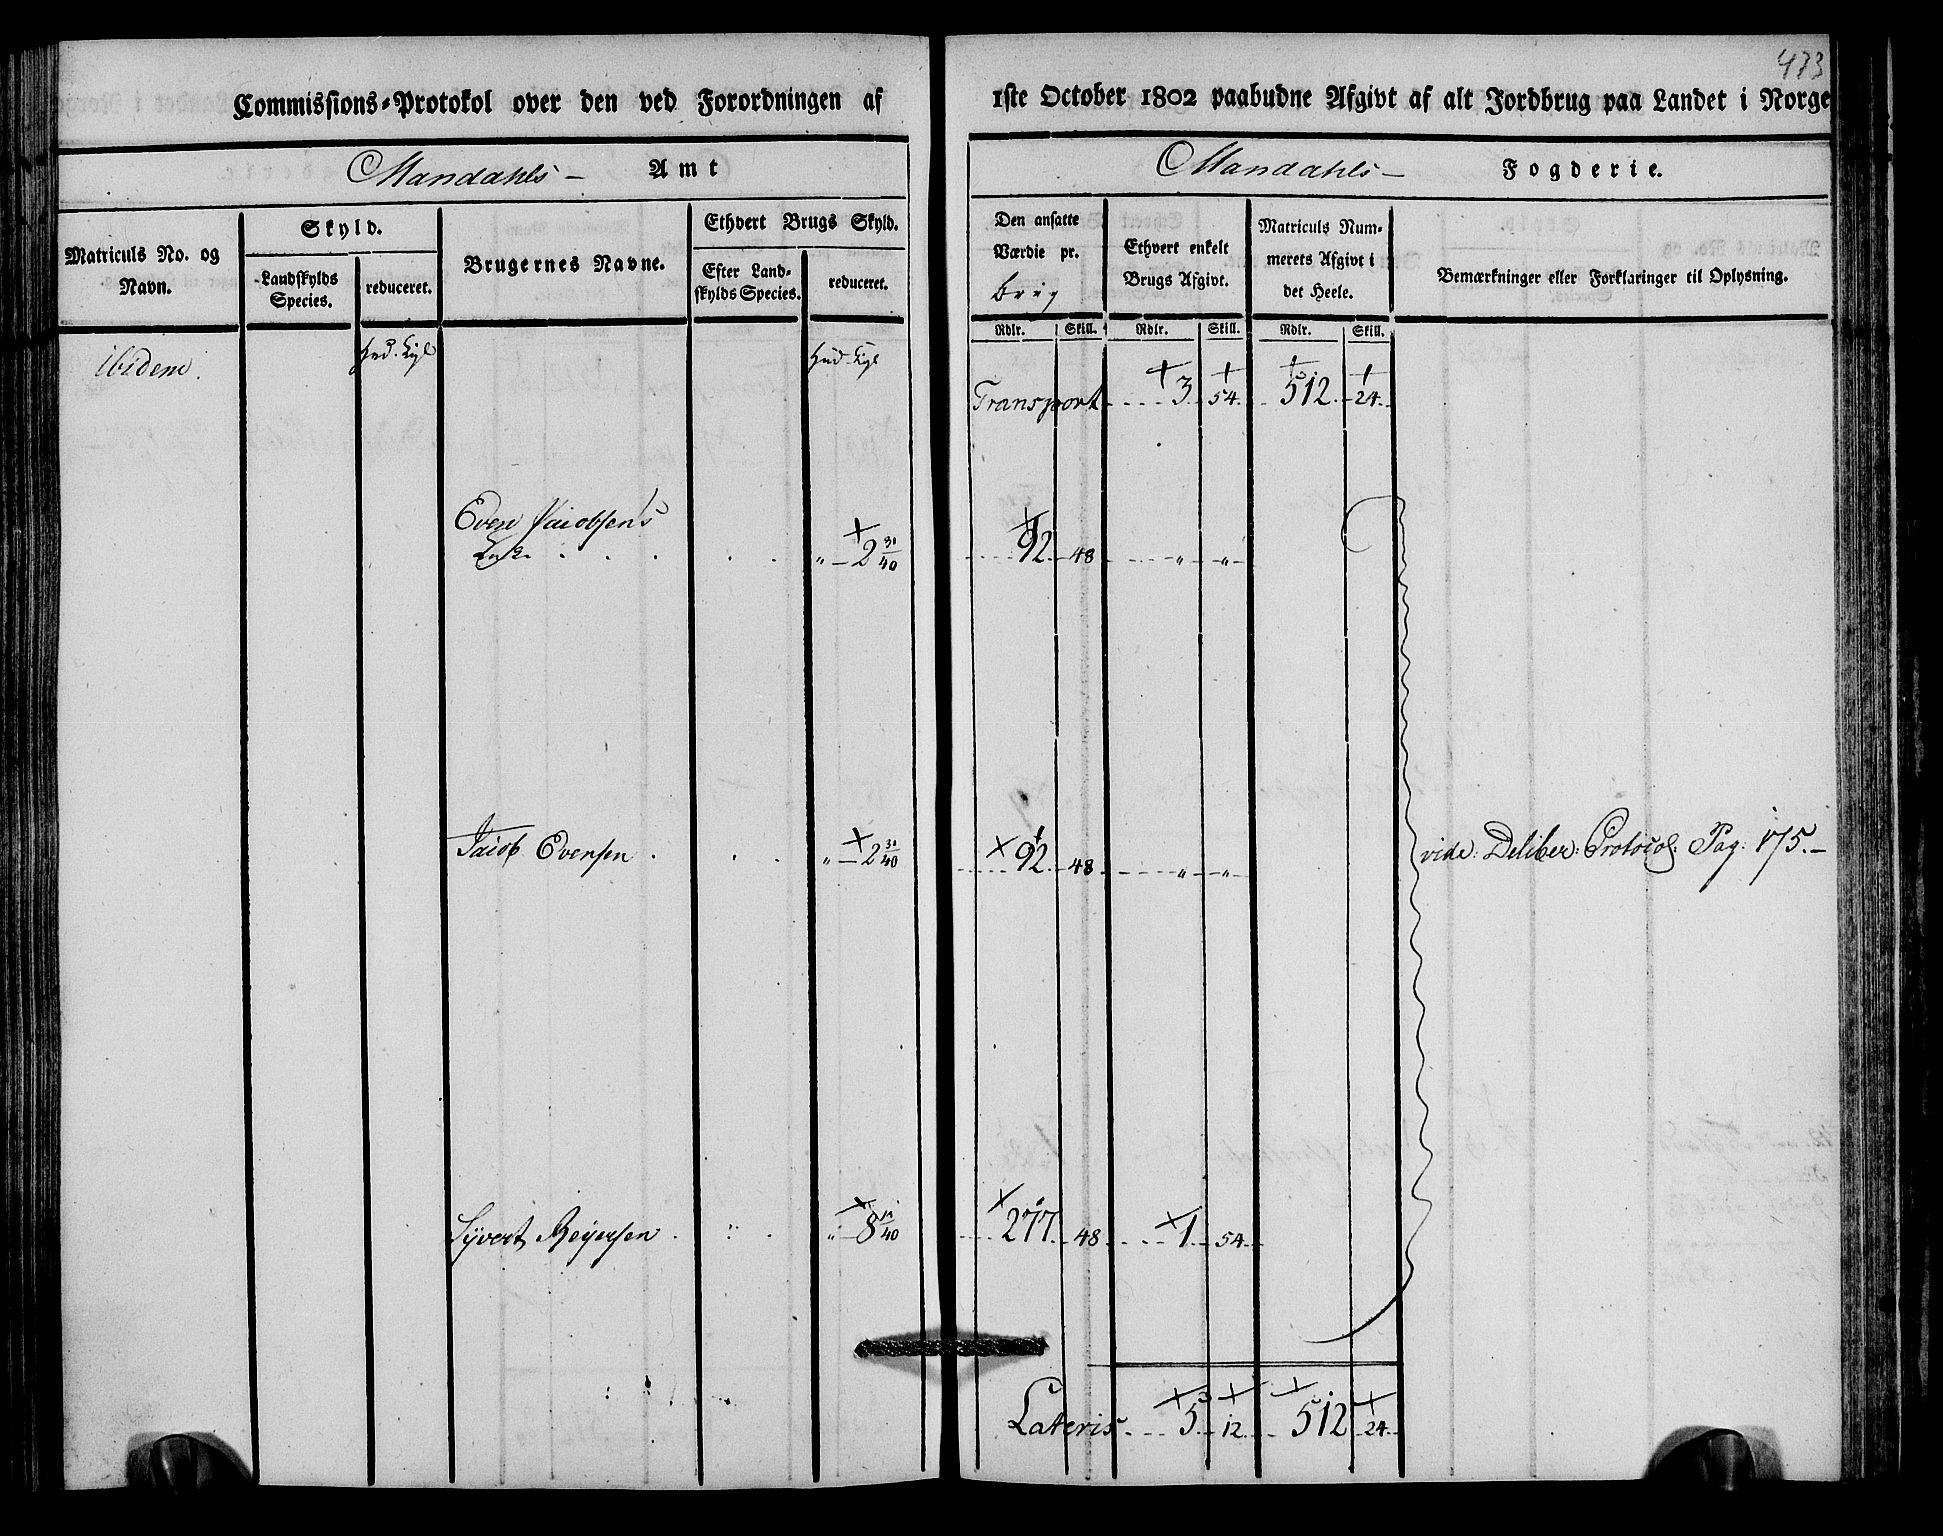 473
Commissions-Protokol over den ved Forordningen af 1ste October 1802 paabudne Afgivt af alt Jordbrug paa Landet i Norge
Mandahls – Amt
Mandahls – Fogderie.
Matriculs No. og Navn.
Skyld.
Landskylds Species.
reduceret.
Brugernes Navne.
Ethvert Brugs Skyld.
Efter Landskylds Species.
reduceret.
Den ansatte Værdie pr.
Ethvert enkelt Brugs Afgivt.
Matriculs Nummerets Afgivt i det Heele.
Bemærkninger eller Forklaringer til Oplysning.
Rdlr. Skill. Rdlr. Skill. Rdlr. Skill.
ibidem. Hud. Hud.
Transport 3. 54. 512. 24.
Even Jacobsens
Enke . . . . . „ – 2 30/40 92. 48 „ „
Jacob Evensen . . . „ – 2 30/40 92 48 „ „ vide: Deliber: Protocol: Pag: 175. –
Syvert Reyersen . . . „ – 8 /40 277. 48 1 54
Lateris. 5. 12. 512. 24.